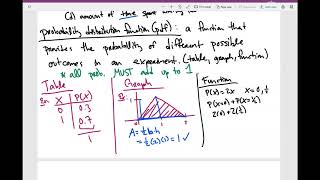 (d) amount of time spent
probability distribution function (pdf): a function that
provides the probability of different possible
outcomes in an experiment. (table, graph, function)
* all prob. MUST add up to 1
Table
Ex: X P(X)
0 0.3
1 0.7
1
Graph
Ex:
A = ½b·h
= ½(2)(1) = 1 ✓
Function
P(X)=2x X=0,½
P(X=0)+P(X=½)
2(0)+2(½)